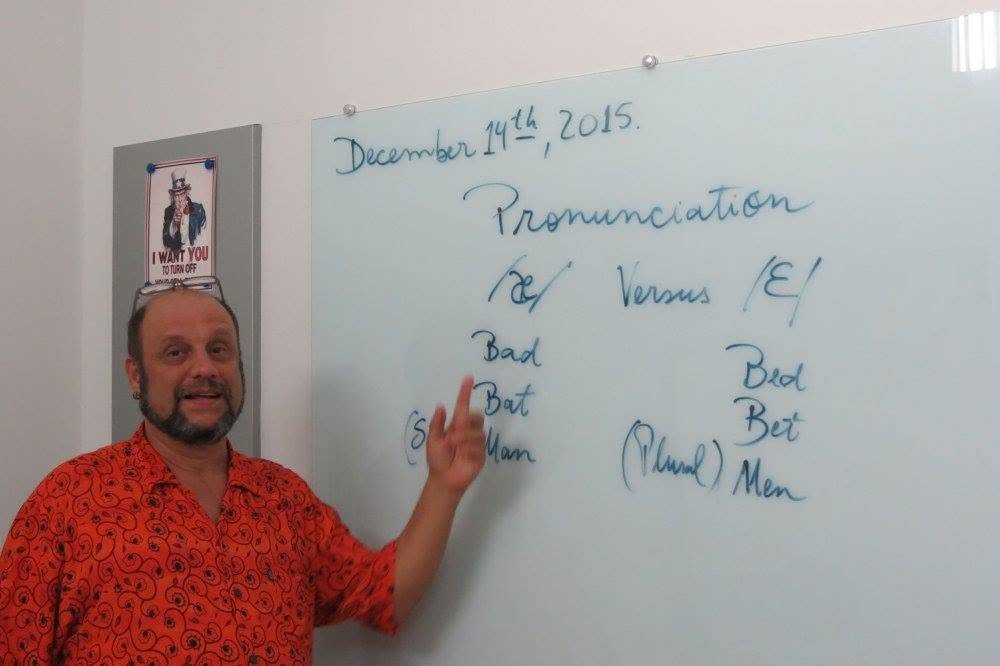 December 14th, 2015.
Pronunciation
/æ/ Versus /ɛ/
Bad Bed
Bat Bet
(S Man (Plural) Men
I WANT YOU
TO TURN OFF